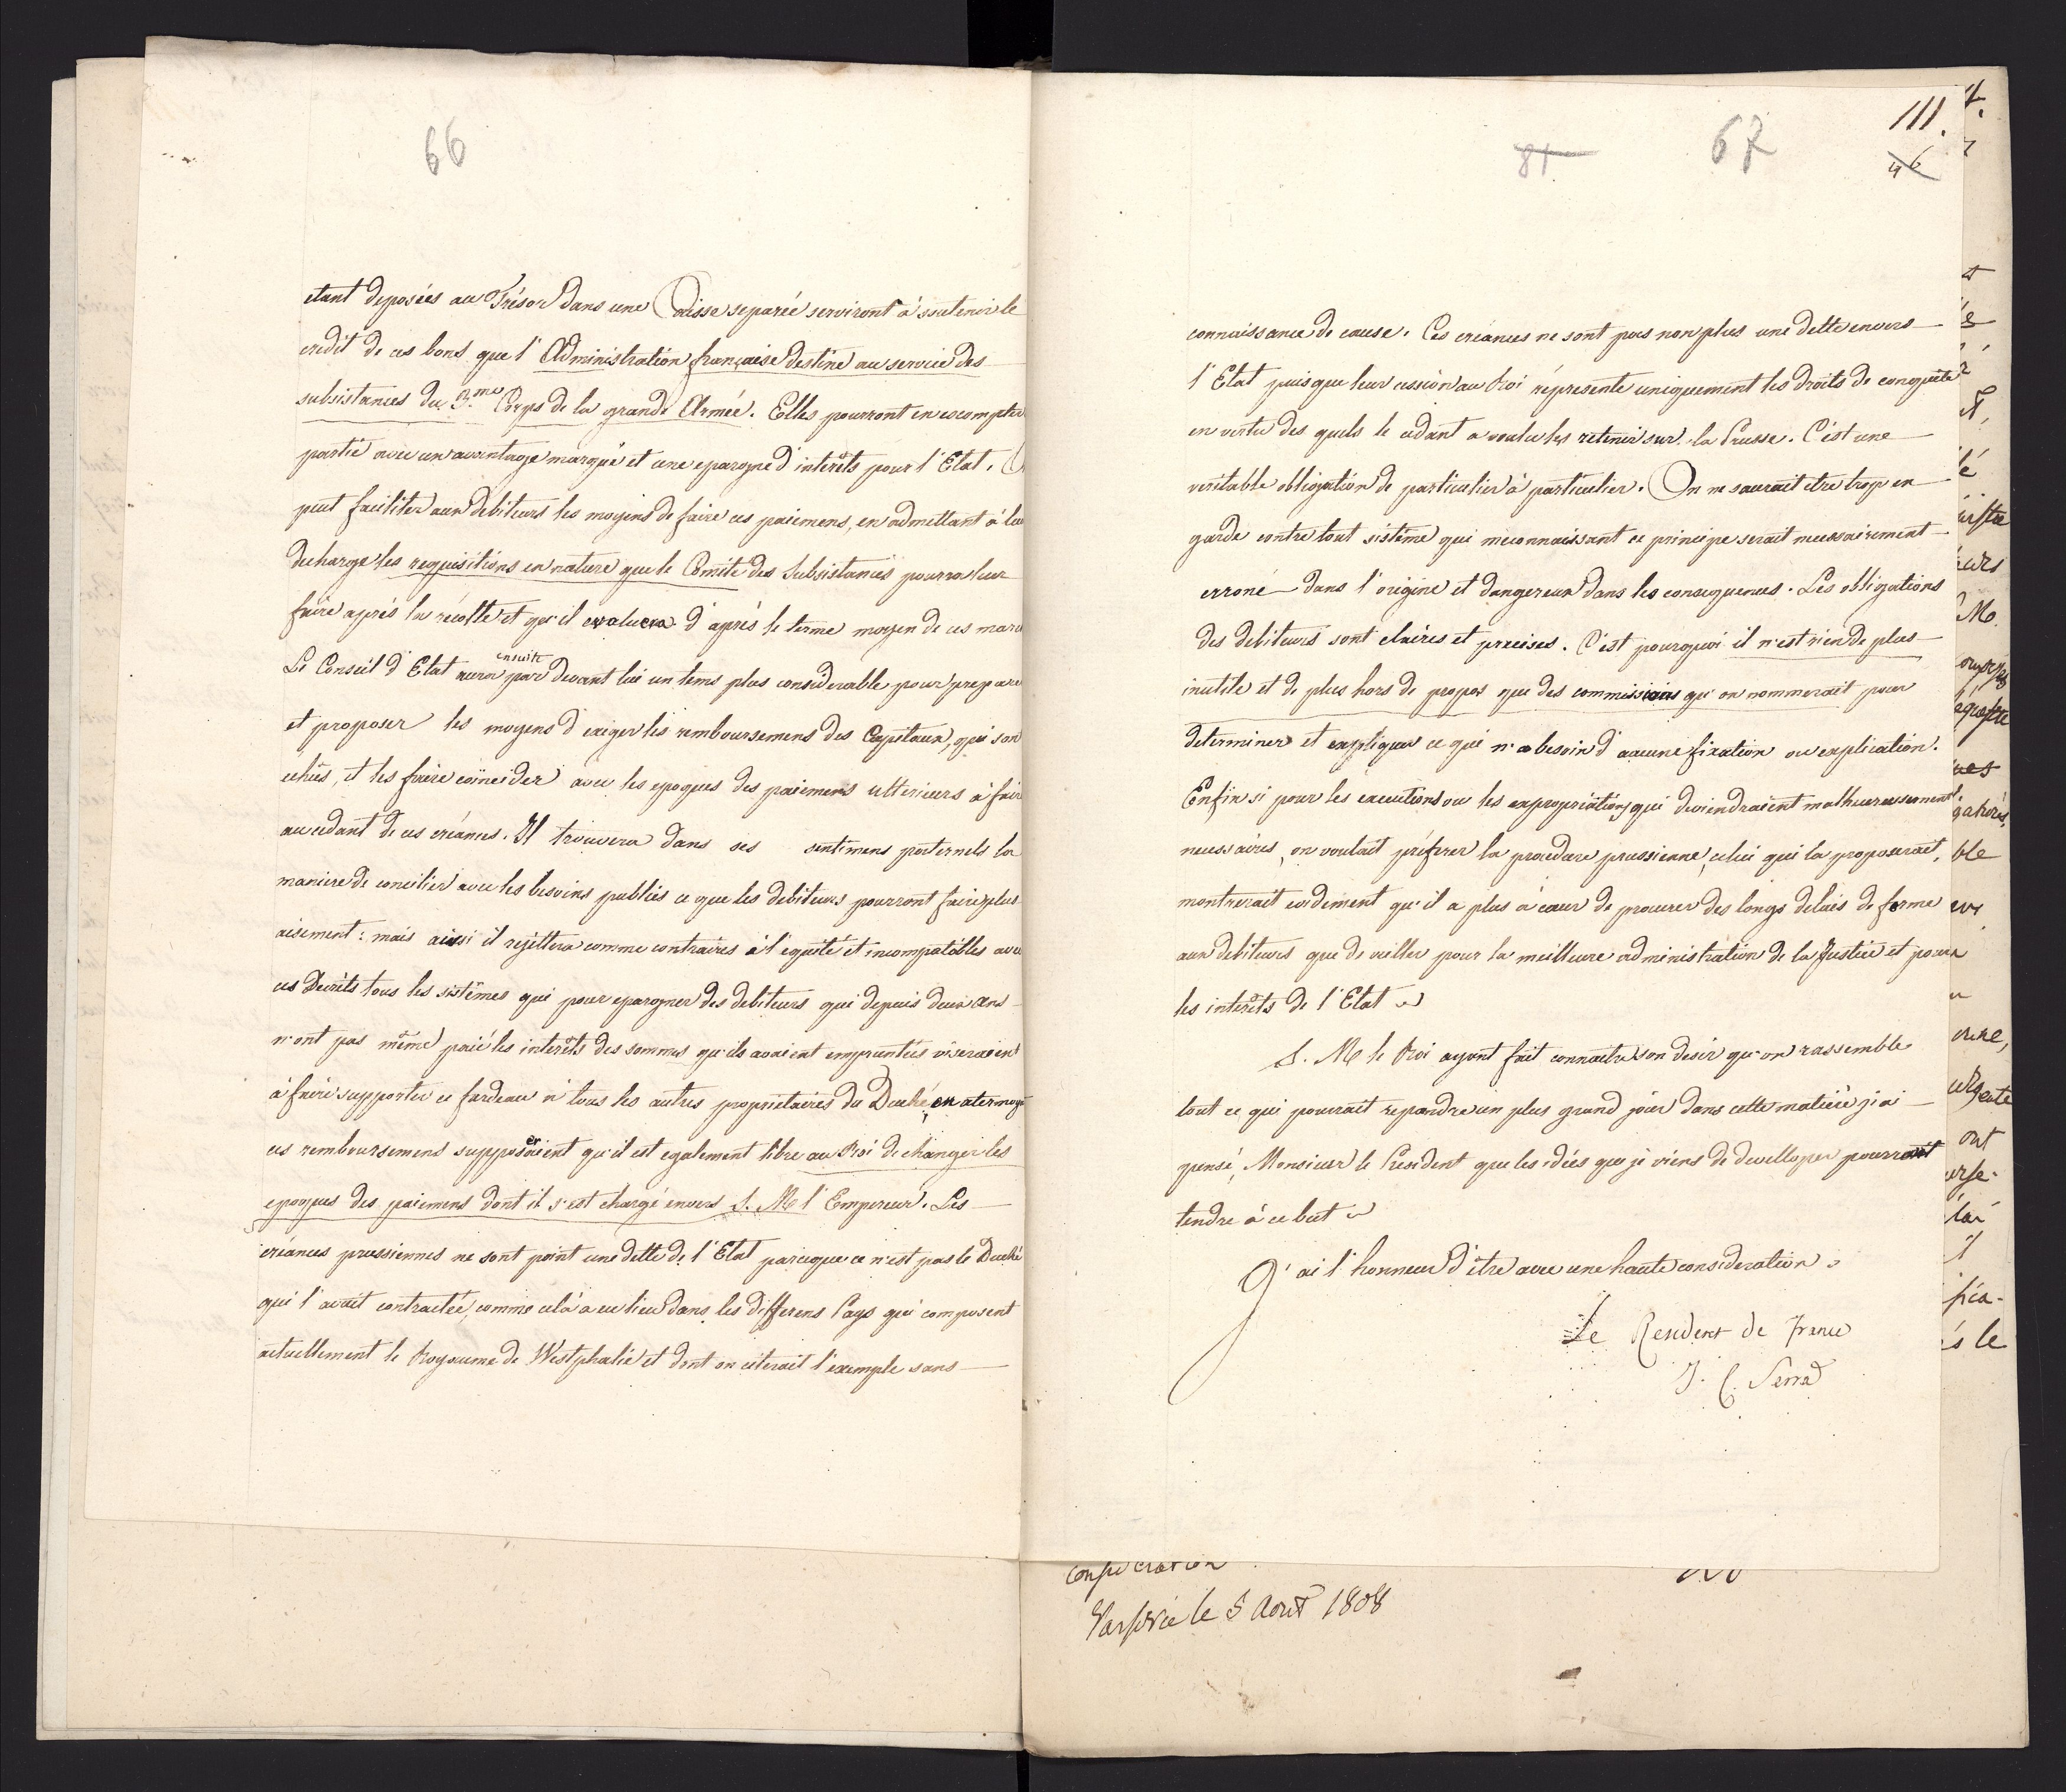 66
etant deposées au Trésor dans une Caisse separée serviront à soutenir le
credit de ces bons que l'Administration française destine au service des
subsistances du 3.me Corps de la grande Armée. Elles pourront en escompter
partie avec un avantage marqué et une epargne d'interêts pour l'Etat.
peut faciliter aux debiteurs les moyens de faire ces paiemens, en admettant à leur
decharge les requisitions en nature que le Comité des Subsistances pourra leur
faire après la récolte et qu'il evaluera d'après le terme moyen de ces
Le Conseil d'Etat aura ensuite par devant lui un tems plus considerable pour preparer
et proposer les moyens d'exiger les remboursemens des Capitaux, qui son
echûs, et les faire coïncider avec les epoques des paiemens ulterieurs à faire
au cedant de ces créances. Il trouvera dans ses sentimens paternels la
maniere de concilier avec les besoins publics ce que les debiteurs pourront faire plus
aisement: mais aussi il rejettera comme contraires à l'equité et incompatibles avec
ces Decrêts tous les sistêmes qui pour epargner des debiteurs qui depuis deux ans
n'ont pas même paié les interêts des sommes qu'ils avaient empruntées viseraient
à faire supporter ce fardeau à tous les autres proprietaires du Duché, en
ces remboursemens supposeraient qu'il est egalement libre au Roi de changer les
epoques des paiemens dont il s'est chargé envers S. M. l'Empereur. Les
créances prussiennes ne sont point une dette de l'Etat parceque ce n'est pas le Duché
qui l'avait contractée, comme celà a eu lieu dans les differens Pays qui composent
actuellement le Royaume de Westphalie et dont on citerait l'exemple sans
111.
67
81
46
connaissance de cause. Ces créances ne sont pas non plus une dette envers
l'Etat puisque leur cession au Roi réprésente uniquement les droits de conquête
en vertu des quels le cédant a voulu les retenir sur la Prusse. C'est une
veritable obligation de particulier à particulier. On ne saurait etre trop en
garde contre tout sistême qui meconnaissant ce principe serait necessairement
erroné dans l'origine et dangereux dans les consequences. Les obligations
des debiteurs sont claires et precises. C'est pourquoi il n'est rien de plus
inutile et de plus hors de propos que des commissions qu'on nommerait pour
determiner et expliquer ce qui n'a besoin d'aucune fixation ou explication.
Enfin si pour les executions ou les expropriations qui deviendraient malheureusement
necessaires, on voulait préferer la procedure prussienne, celui qui la proposerait,
montrerait evidement qu'il a plus à cœur de procurer des longs delais de forme
aux debiteurs que de veiller pour la meilleure administration de la Justice et pour
les interêts de l'Etat
S. M. le Roi ayant fait connaitre son desir qu'on rassemble
tout ce qui pourrait repandre un plus grand jour dans cette matiere j'ai
pensé, Monsieur le President que les idées que je viens de developer pourraient
tendre à ce but
J'ai l'honneur d'être avec une haute consideration.
Le Resident de France
J. C. Serra
consideration
Varsovie le 5 Aout 1808